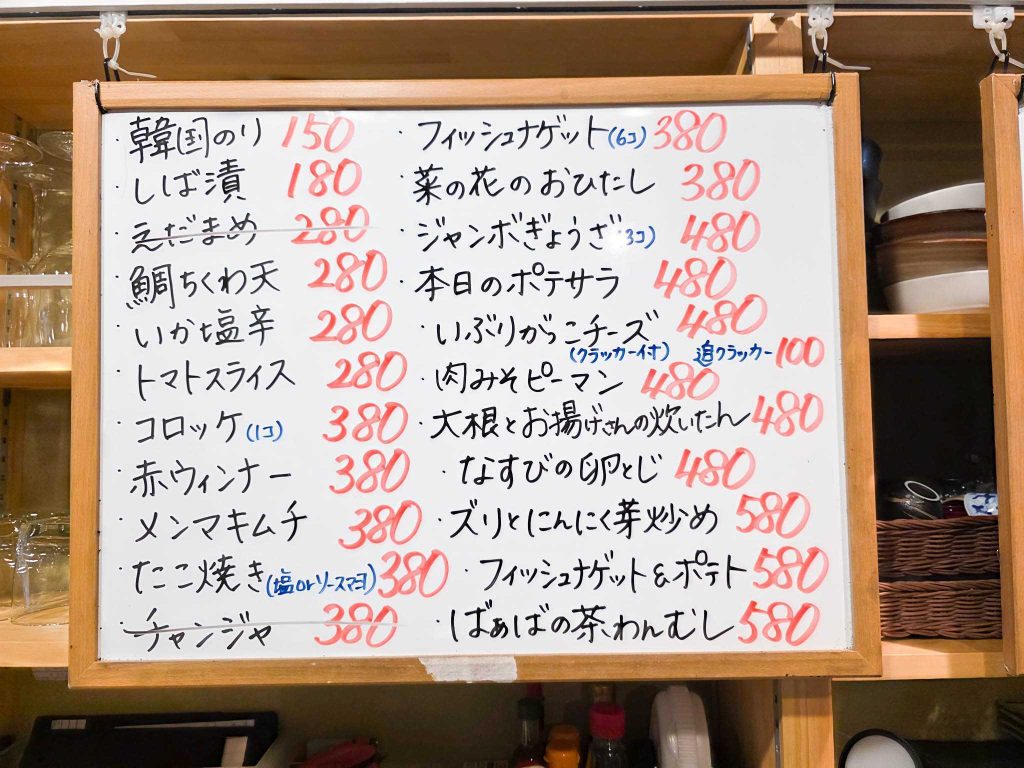 ・韓国のり 150
・しば漬 180
・えだまめ 280
・鯛ちくわ天 280
・いか塩辛 280
・トマトスライス 280
・コロッケ(1コ) 380
・赤ウィンナー 380
・メンマキムチ 380
・たこ焼き(塩orソースマヨ) 380
・チャンジャ 380
・フィッシュナゲット(6コ) 380
・菜の花のおひたし 380
・ジャンボぎょうざ(3コ) 480
・本日のポテサラ 480
・いぶりがっこチーズ 480
(クラッカー付) 追クラッカー100
・肉みそピーマン 480
・大根とお揚げさんの炊いたん 480
・なすびの卵とじ 480
・ズリとにんにく芽炒め 580
・フィッシュナゲット&ポテト 580
・ばぁばの茶わんむし 580